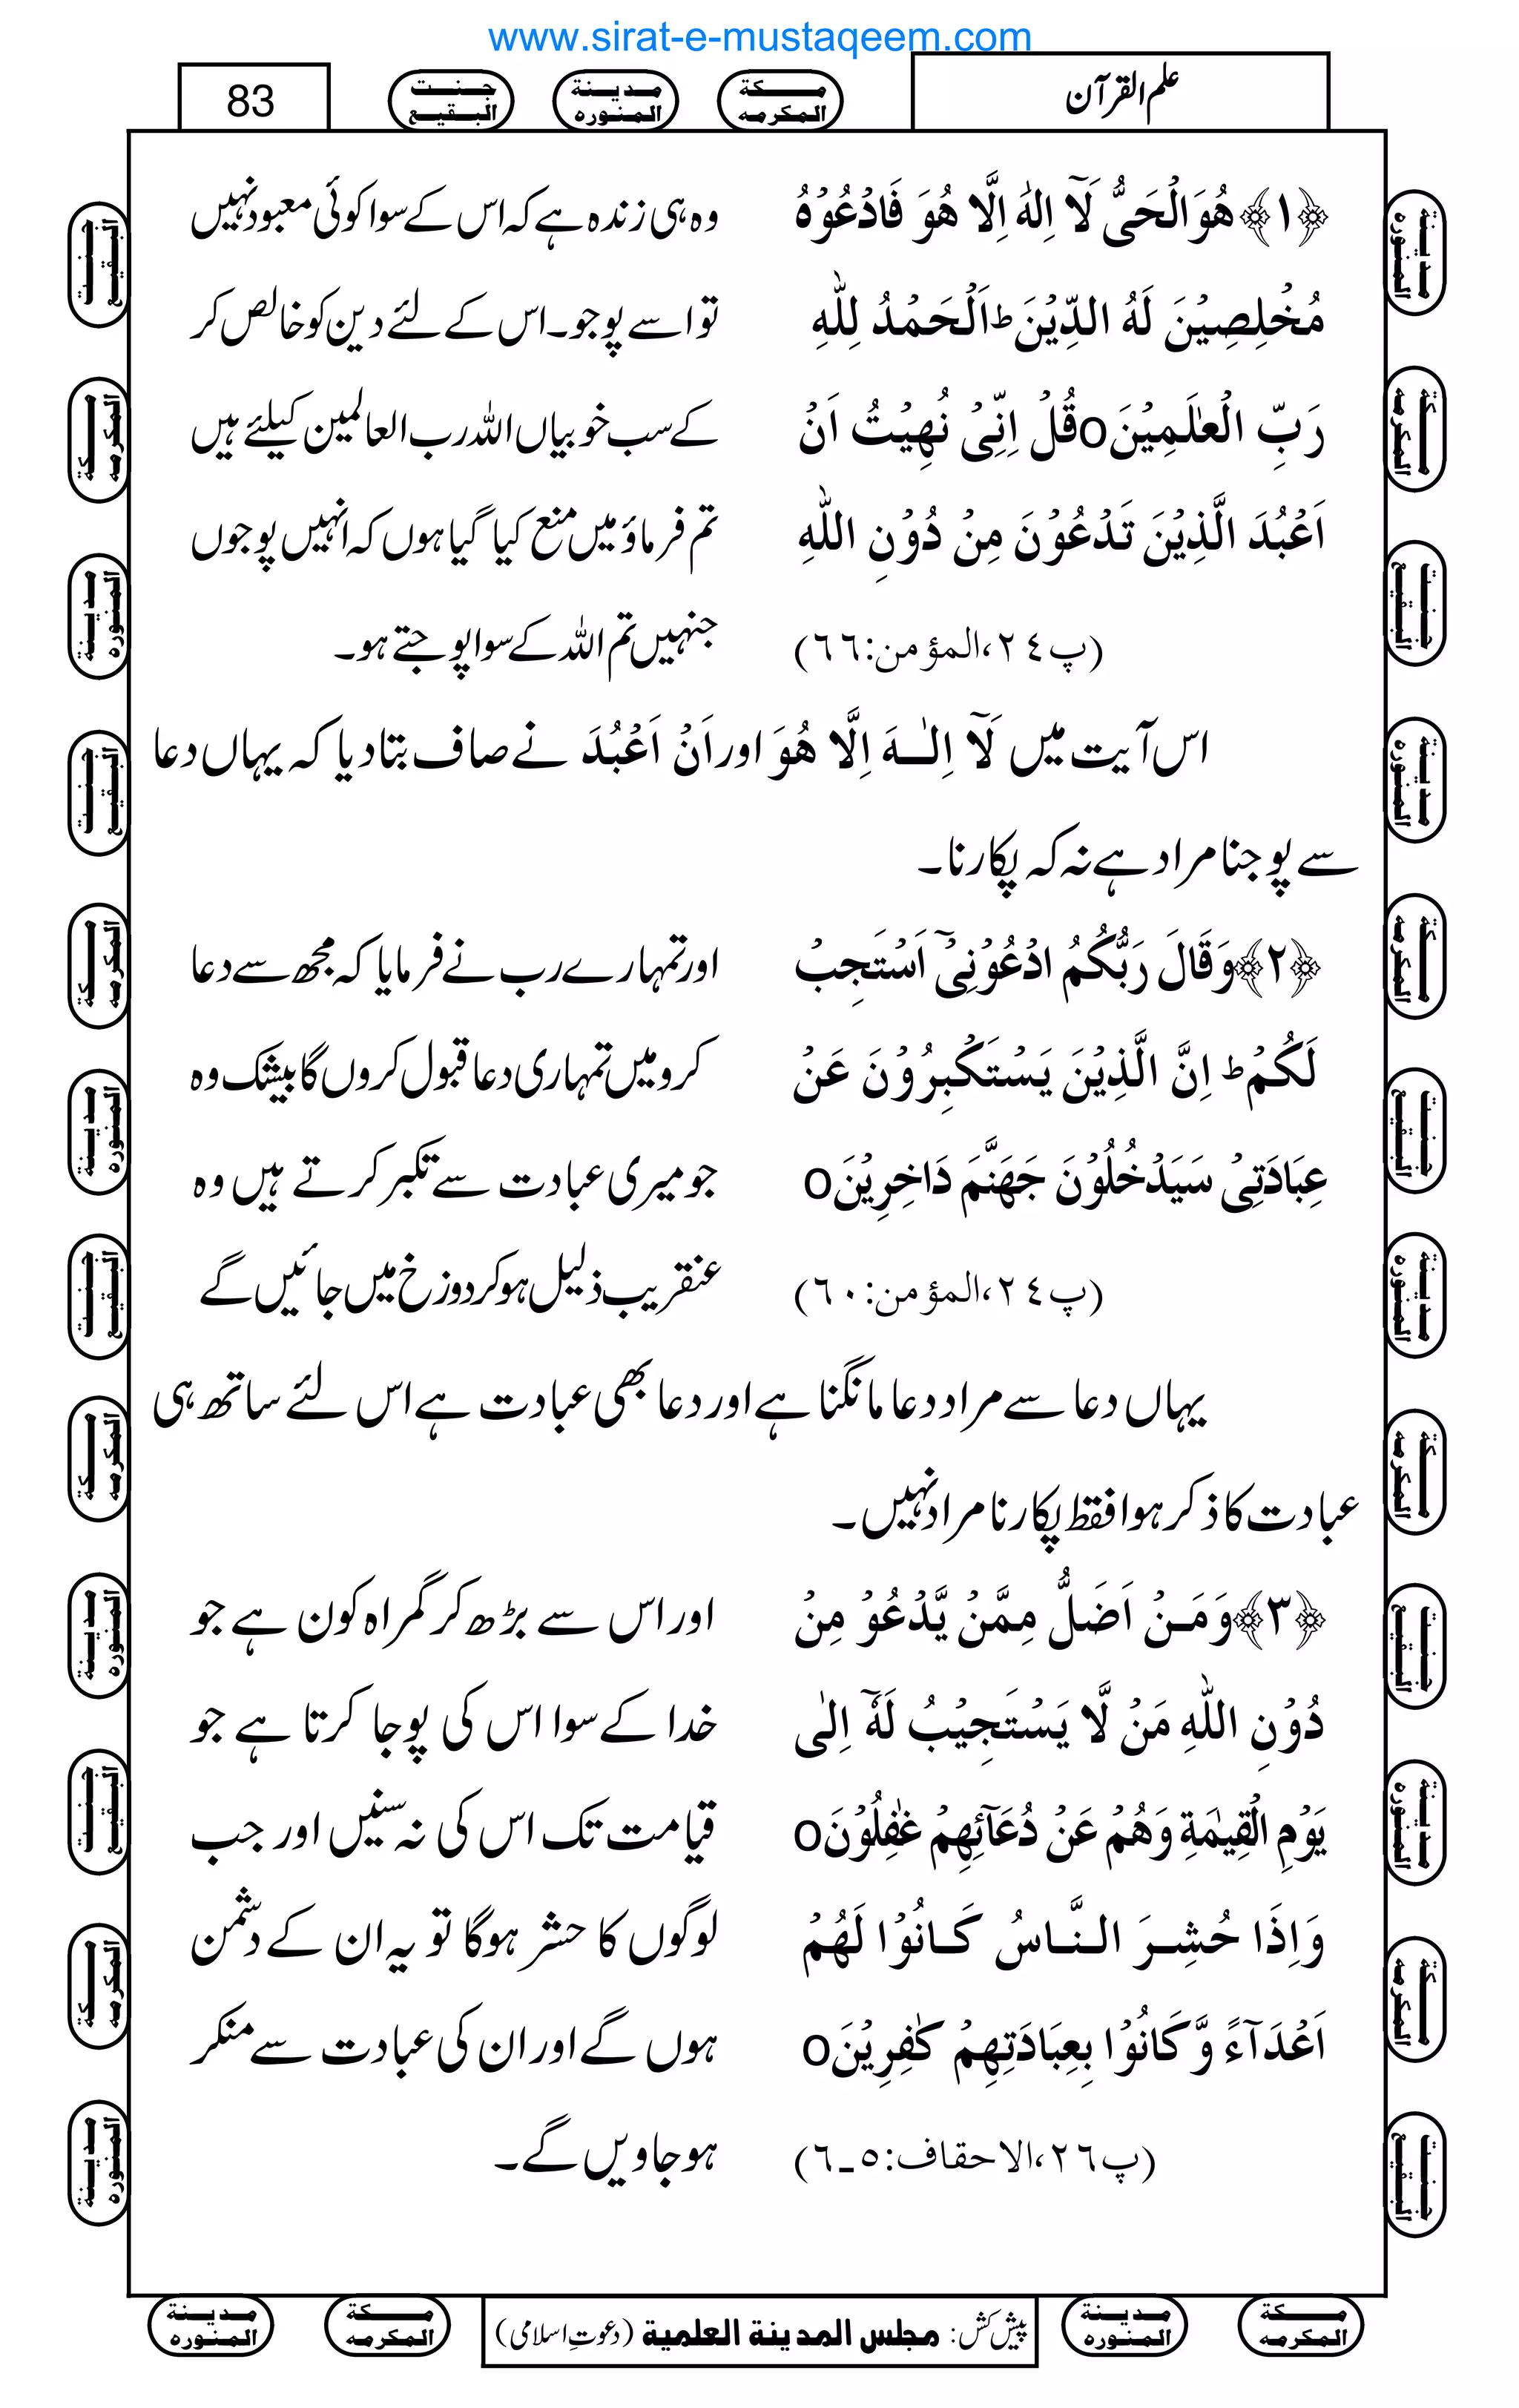 www.sirat-e-mustaqeem.com
علم القرآن
مكة المكرمه
مدينة المنوره
جنت البقيع
83
﴿۱﴾ هُوَ الْحَیُّ لَاۤ اِلٰهَ اِلَّا هُوَ فَادْعُوْهُ
مُخْلِصِیْنَ لَهُ الدِّیْنَ ؕ اَلْحَمْدُ لِلّٰهِ
رَبِّ الْعٰلَمِیْنَo قُلْ اِنِّیْ نُهِیْتُ اَنْ
اَعْبُدَ الَّذِیْنَ تَدْعُوْنَ مِنْ دُوْنِ اللّٰهِ
(پ٢٤،المؤمن:٦٦)
وہ ہی زندہ ہے کہ اس کے سوا کوئی معبود نہیں
تو اسے پوجو۔ اس کے لئے دین کو خالص کر
کے سب خوبیاں اللہ رب العالمین کیلئے ہیں
تم فرماؤ میں منع کیا گیا ہوں کہ انہیں پوجوں
جنہیں تم اللہ کے سوا پوجتے ہو۔
اس آیت میں لَاۤ اِلٰـهَ اِلَّا هُوَ اور اَنْ اَعْبُدَ نے صاف بتا دیا کہ یہاں دعا
سے پوجنا مراد ہے نہ کہ پکارنا۔
﴿۲﴾ وَقَالَ رَبُّكُمُ ادْعُوْنِیْۤ اَسْتَجِبْ
لَكُمْ ؕ اِنَّ الَّذِیْنَ یَسْتَكْبِرُوْنَ عَنْ
عِبَادَتِیْ سَیَدْخُلُوْنَ جَهَنَّمَ دَاخِرِیْنَo
(پ٢٤،المؤمن:٦٠)
اور تمہارے رب نے فرمایا کہ مجھ سے دعا
کرو میں تمہاری دعا قبول کروں گا بیشک وہ
جو میری عبادت سے تکبر کرتے ہیں وہ
عنقریب ذلیل ہو کر دوزخ میں جائیں گے
یہاں دعا سے مراد دعا مانگنا ہے اور دعا بھی عبادت ہے اس لئے ساتھ ہی
عبادت کا ذکر ہوا فقط پکارنا مراد نہیں۔
﴿۳﴾ وَمَـنْ اَضَلُّ مِمَّنْ یَّدْعُوْ مِنْ
دُوْنِ اللّٰهِ مَنْ لَّا یَسْتَجِیْبُ لَهٗۤ اِلٰی
یَوْمِ الْقِیٰمَةِ وَهُمْ عَنْ دُعَآئِهِمْ غٰفِلُوْنَo
وَاِذَا حُشِـرَ الـنَّـاسُ كَـانُوْا لَهُمْ
اَعْدَآءً وَّ كَانُوْا بِعِبَادَتِهِمْ كٰفِرِیْنَo
(پ٢٦،الاحقاف:٥۔٦)
اور اس سے بڑھ کر گمراہ کون ہے جو
خدا کے سوا اس کی پوجا کرتا ہے جو
قیامت تک اس کی نہ سنیں اور جب
لوگوں کا حشر ہوگا تو یہ ان کے دشمن
ہوں گے اور ان کی عبادت سے منکر
ہو جاویں گے۔
پیش کش: مجلس المدینة العلمیة (دعوتِ اسلامی)